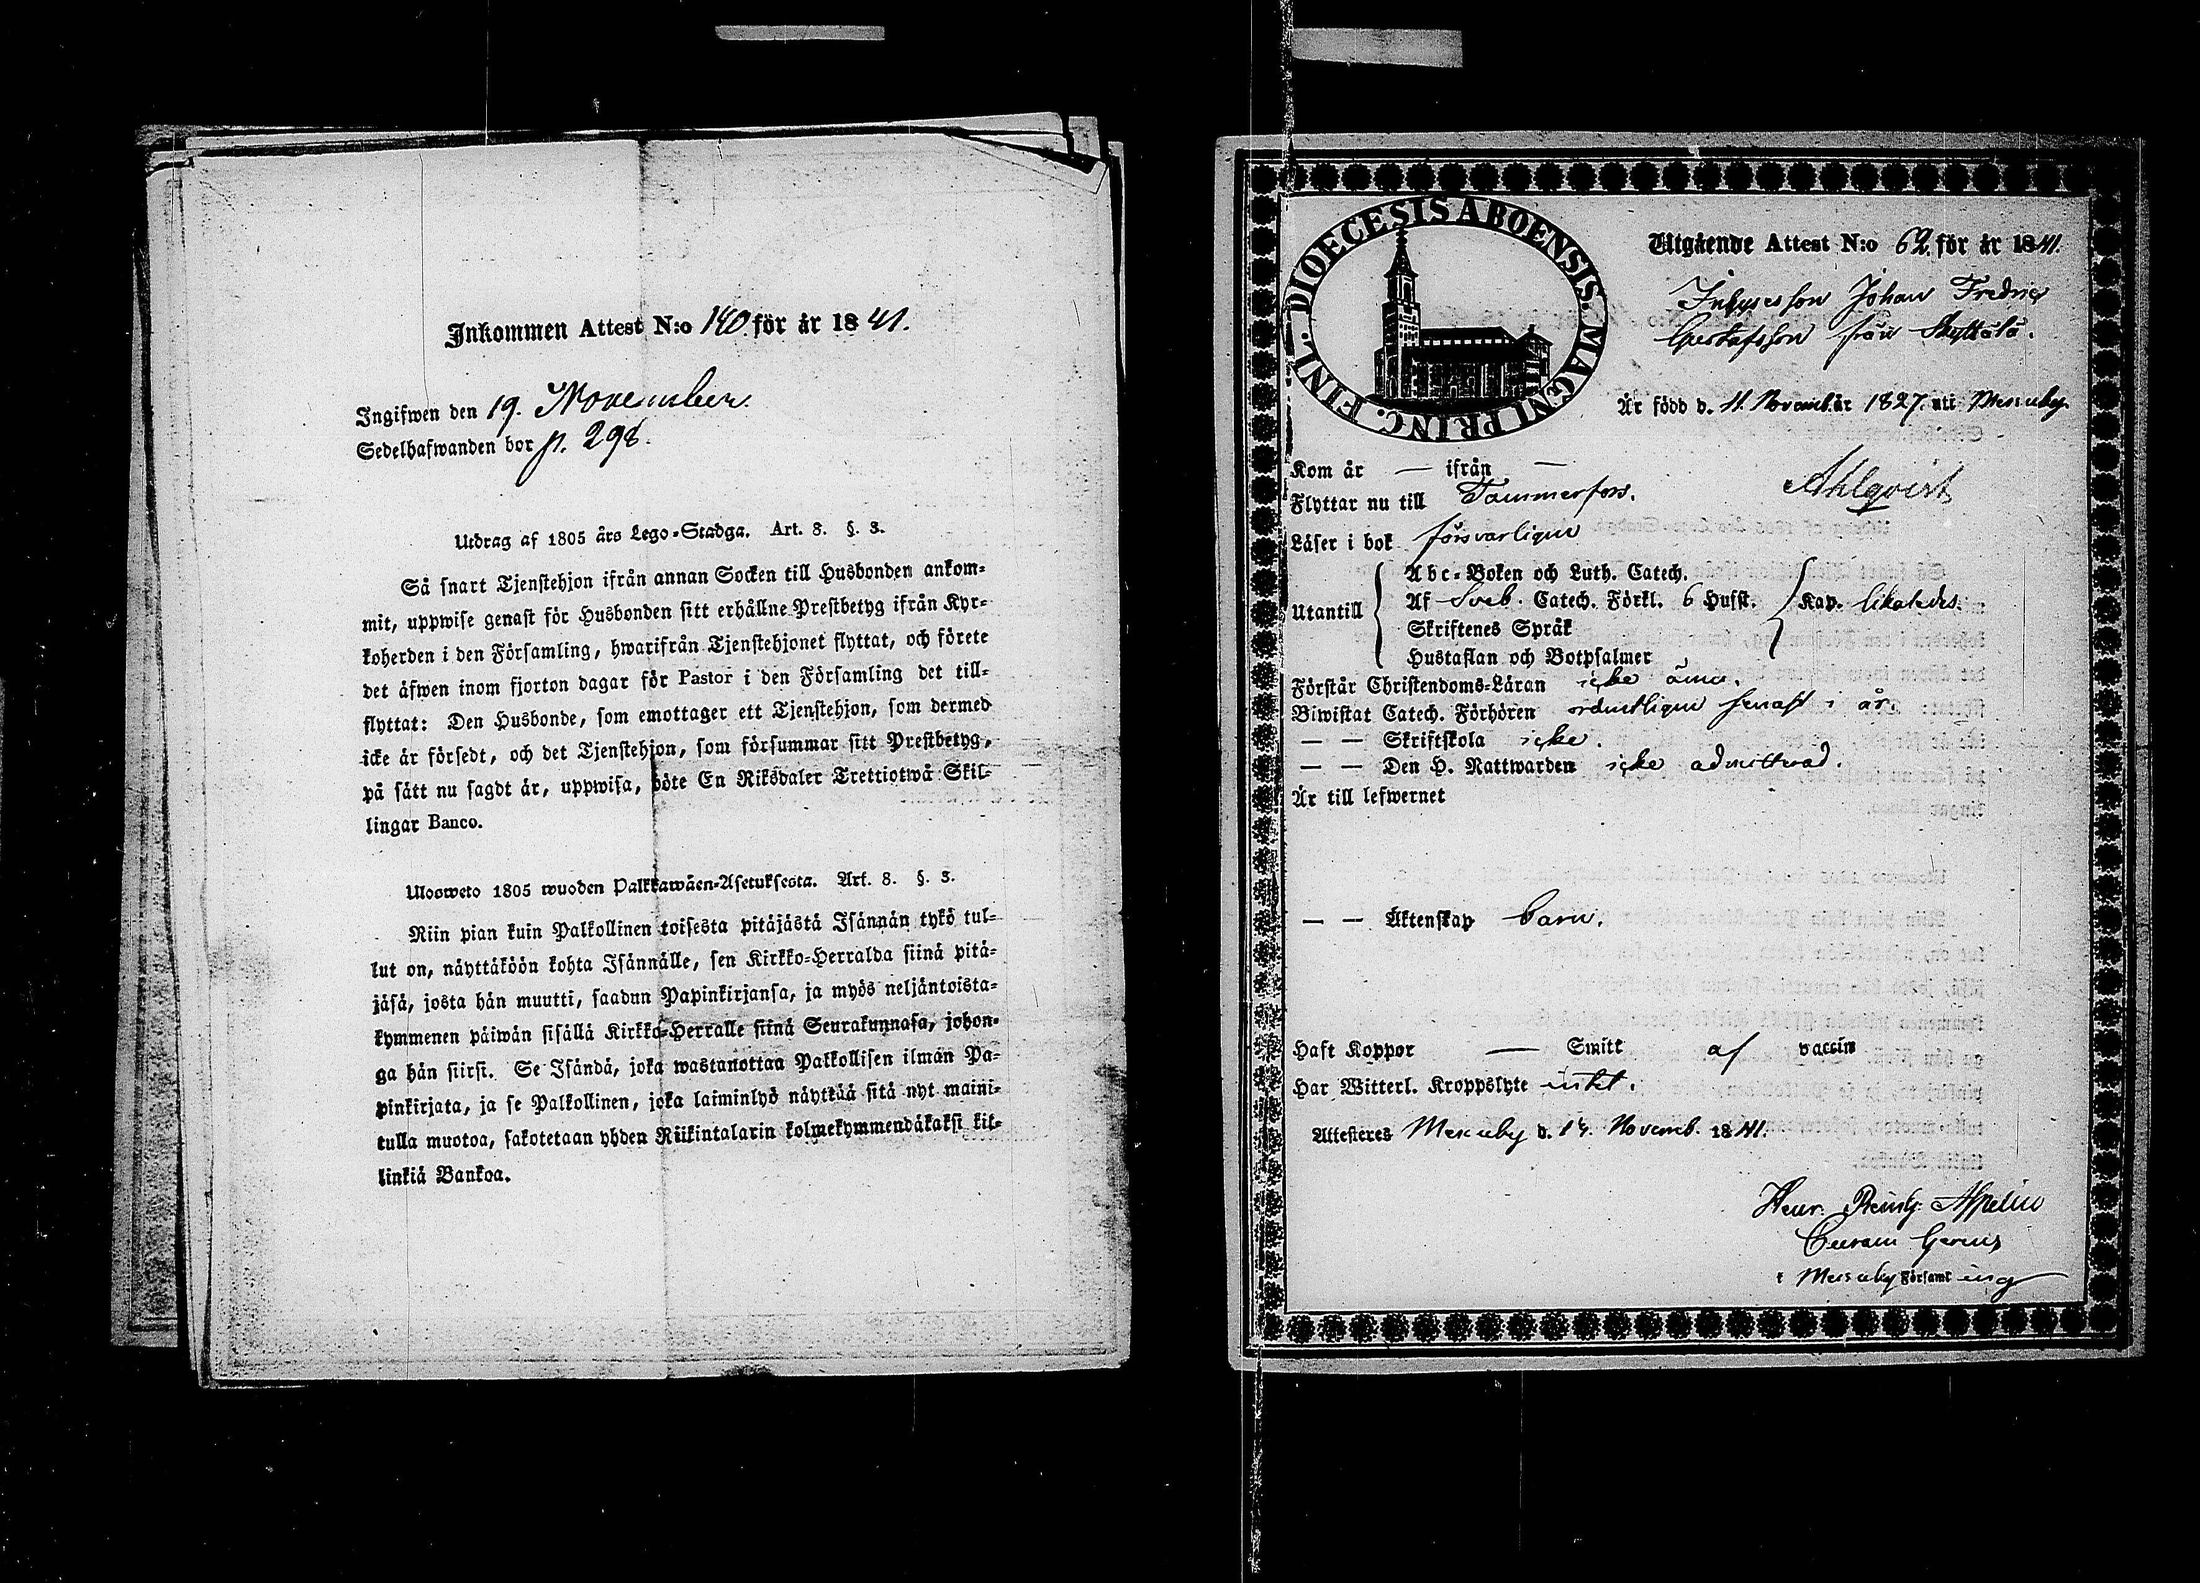 Inkommen Attest N:o 140 för år 1841.
Ingifwen den 19. November.
Sedelhafwanden bor p. 298.
Utdrag af 1805 års Lego-Stadga. Art. 8. §. 3.
Så snart Tjenstehjon ifrån annan Socken till Husbonden ankom-
mit, uppwise genast för Husbonden sitt erhållne Prestbetyg ifrån Kyr-
koherden i den Församling, hwarifrån Tjenstehjonet flyttat, och förete
det äfwen inom fjorton dagar för Pastor i den Församling det till-
flyttat: Den Husbonde, som emottager ett Tjenstehjon, som dermed
icke är försedt, och det Tjenstehjon, som försummar sitt Prestbetyg,
på sätt nu sagdt är, uppwisa, böte En Riksdaler Trettiotwå Skil-
lingar Banco.
Ulosweto 1805 wuoden Palkkawäen-Asetuksesta. Art. 8. §. 3.
Niin pian kuin Palkollinen toisesta pitäjästä Isännän tykö tul-
lut on, näyttäköön kohta Isännälle, sen Kirkko-Herralda siinä pitä-
jäsä, josta hän muutti, saadun Papinkirjansa, ja myös neljäntoista-
kymmenen päiwän sisällä Kirkko-Herralle siinä Seurakunnasa, johon-
ga hän siirsi. Se Isändä, joka wastanottaa Palkollisen ilman Pa-
pinkirjata, ja se Palkollinen, joka laiminlyö näyttää sitä nyt maini-
tulla muotoa, sakotetaan yhden Riikintalarin kolmekymmendäkaksi kil-
linkiä Bankoa.
DIOECESIS ABOENSIS. MAGNI PRINC. FINL.
Utgående Attest N:o 62. för år 1841.
Inhysesson Johan Fredric
Gustafsson från Skyttälä.
Är född d. 11. Novemb. år 1827. uti Messuby
Kom år — ifrån —
Flyttar nu till Tammerfors. Ahlqvist
Läser i bok försvarligen
Utantill
Abc-Boken och Luth. Catech.
Af Sveb. Catech. Förkl. 6 Hufst. Kap. likaledes.
Skriftenes Språk
Hustaflan och Botpsalmer
Förstår Christendoms-Läran icke ännu.
Biwistat Catech. Förhören ordentligen senast i år.
— — Skriftskola icke.
— — Den H. Nattwarden icke admitterad.
Är till lefwernet
— — Äktenskap barn.
Haft Koppor — Smitt af vaccin
Har Witterl. Kroppslyte intet.
Attesteras Messuby d. 14. Novemb. 1841.
Henr. Reinh. Aspelin
Curam Gerens
i Messuby Församling